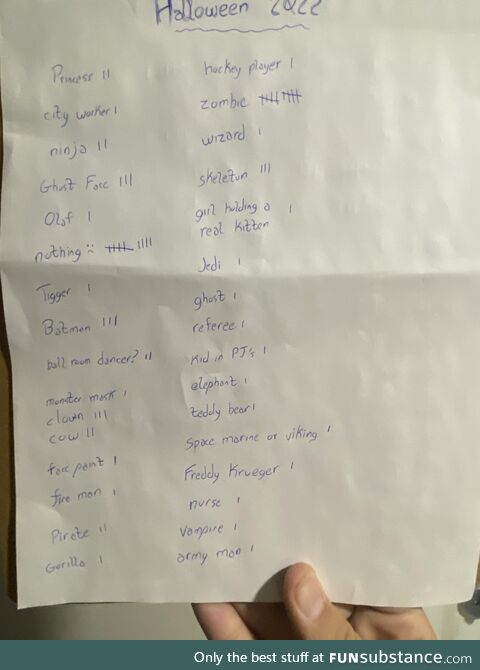 Halloween 2022
Princess II
city worker I
ninja II
Ghost Face III
Olaf I
nothing :: ~~IIII~~ IIII
Tigger I
Batman III
ball room dancer? II
monster mask I
clown III
cow II
face paint I
fire man I
Pirate II
Gorilla I
hockey player I
zombie ~~IIII~~ ~~IIII~~
wizard I
skeletun III
girl holding a I
real kitten
Jedi I
ghost I
referee I
Kid in PJ's I
elephant I
teddy bear I
Space marine or viking I
Freddy Krueger I
nurse I
Vampire I
army man I
Only the best stuff at FUNsubstance.com